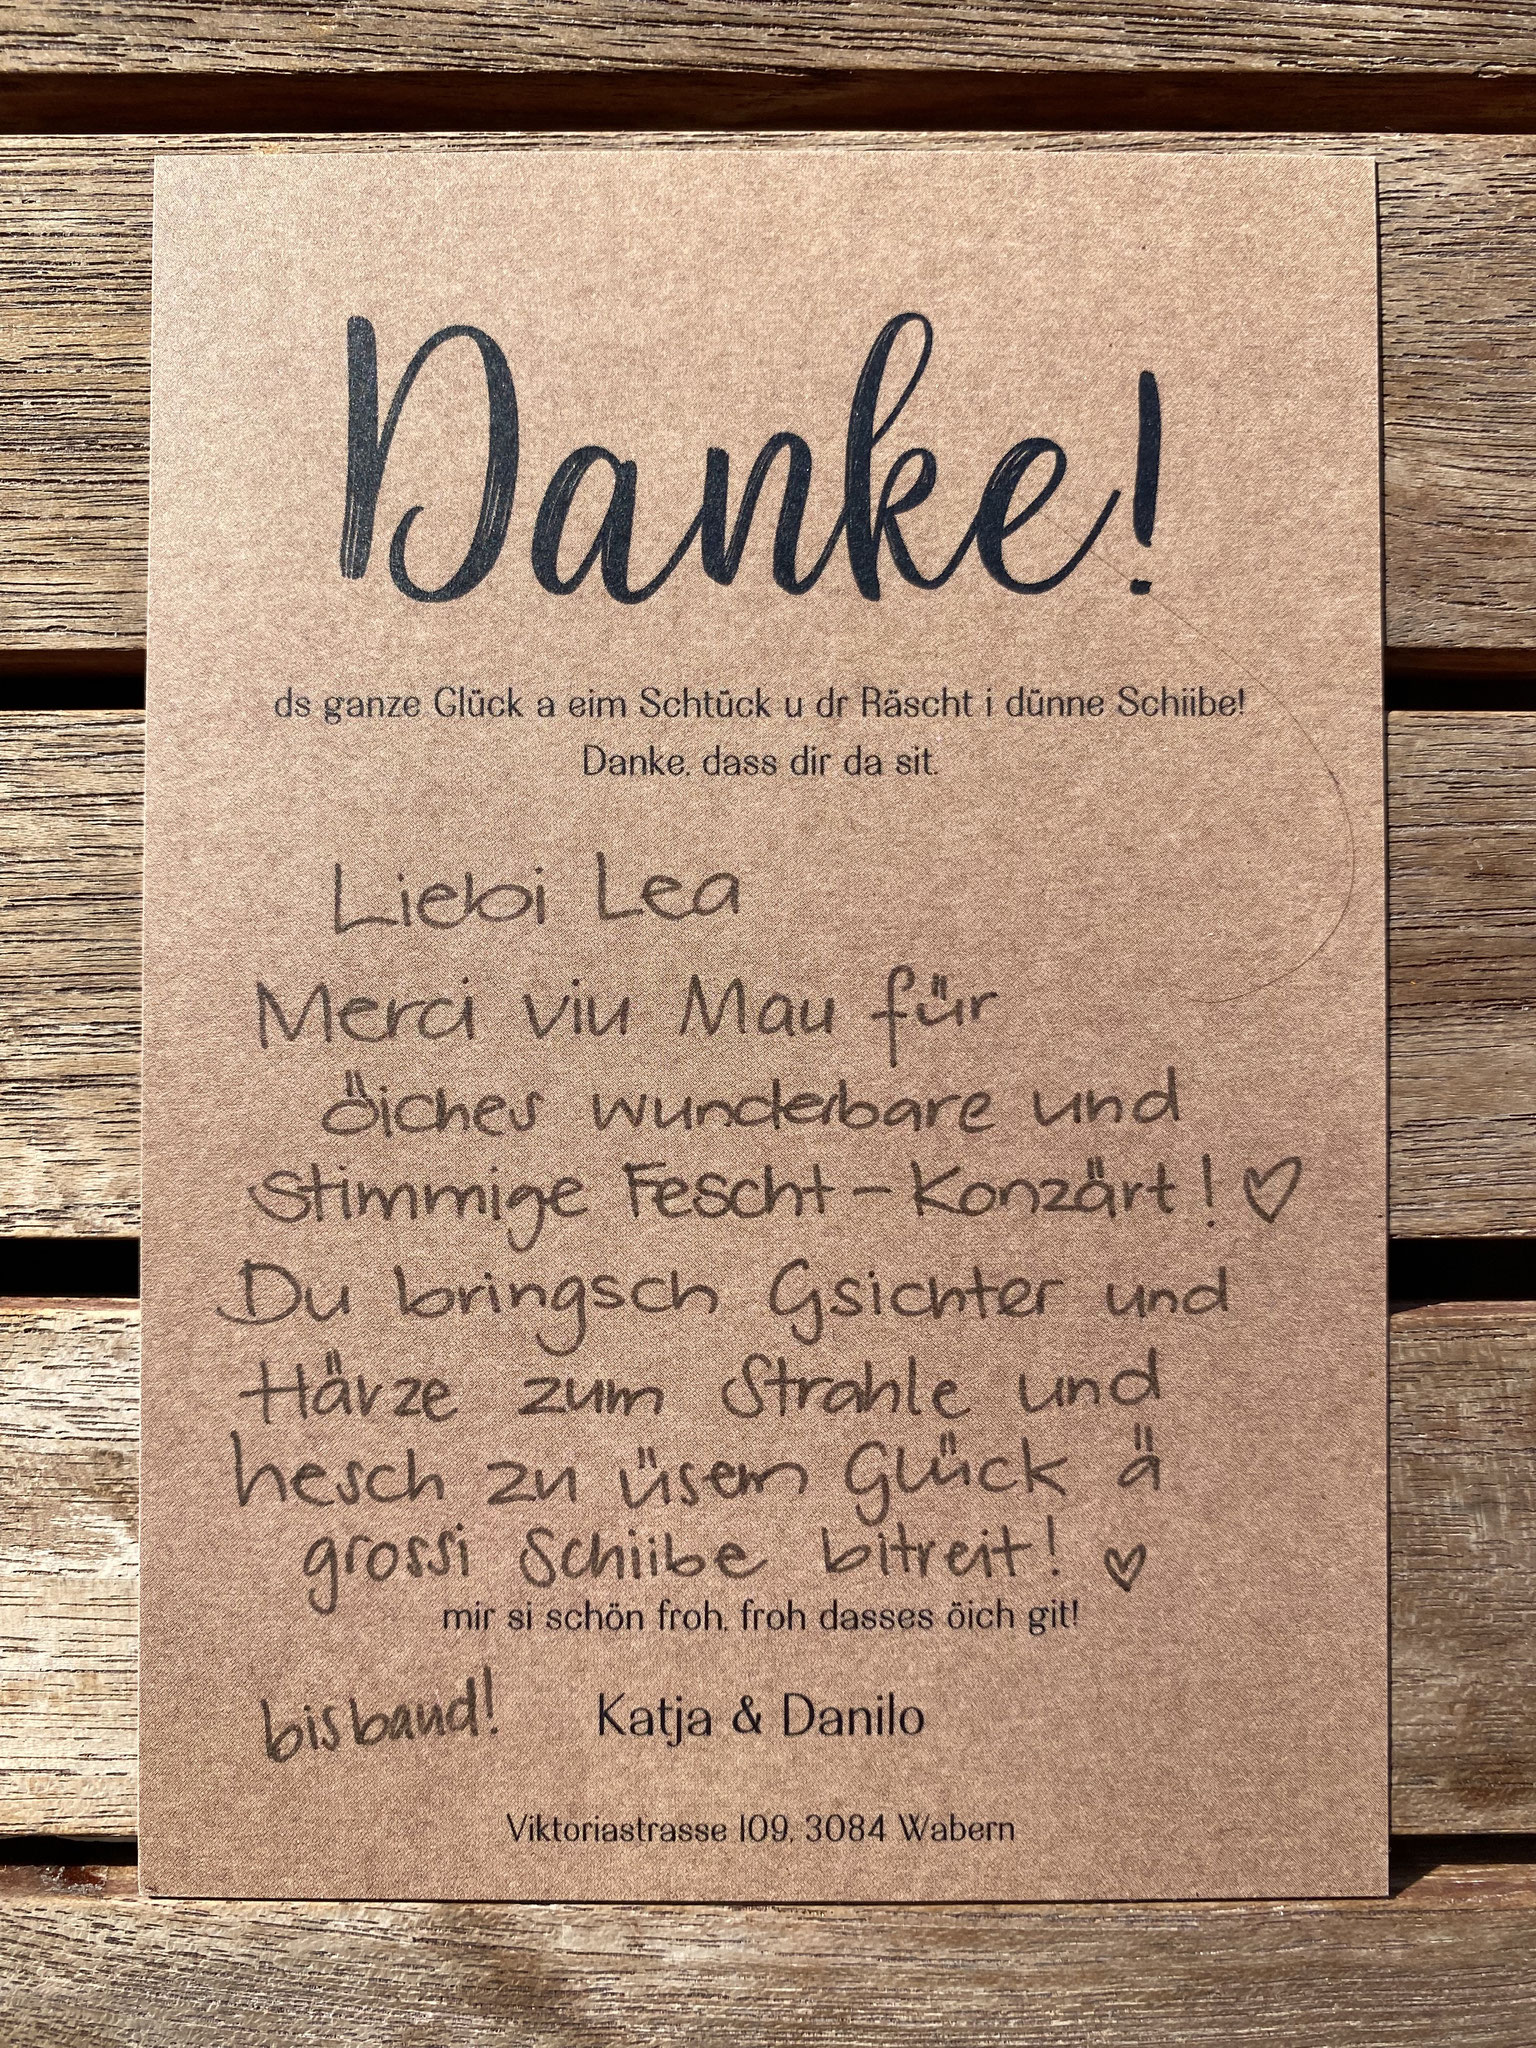 Danke!
ds ganze Glück a eim Schtück u dr Räscht i dünne Schiibe!
Danke, dass dir da sit.
Liebi Lea
Merci viu Mau für
öiches wunderbare und
stimmige Fescht-Konzärt! ♡
Du bringsch Gsichter und
Härze zum Strahle und
hesch zu üsem Glück ä
grossi Schiibe bitreit! ♡
mir si schön froh, froh dasses öich git!
bisbaud!
Katja & Danilo
Viktoriastrasse 109, 3084 Wabern